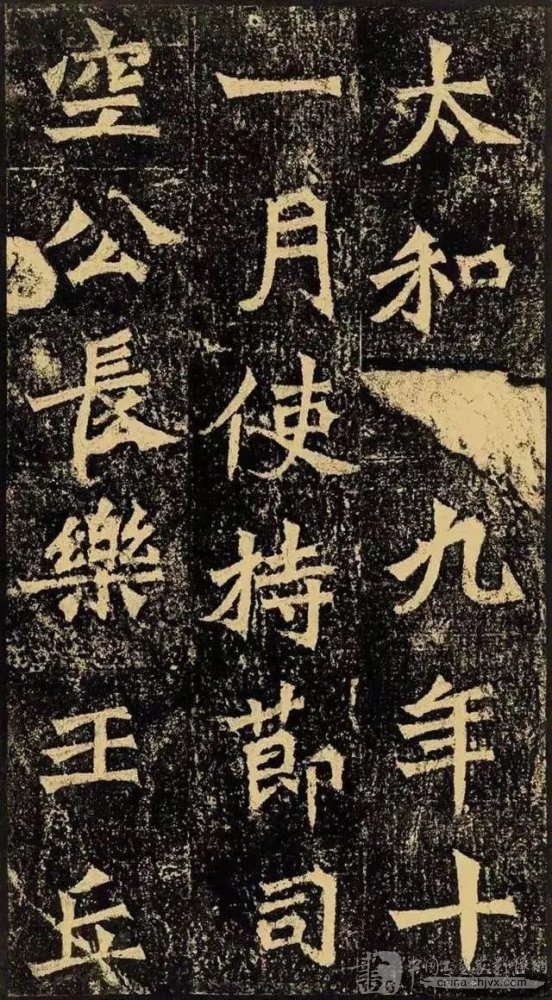 太和九年十
一月使持節司
空公長樂王丘
china-chjvx.com